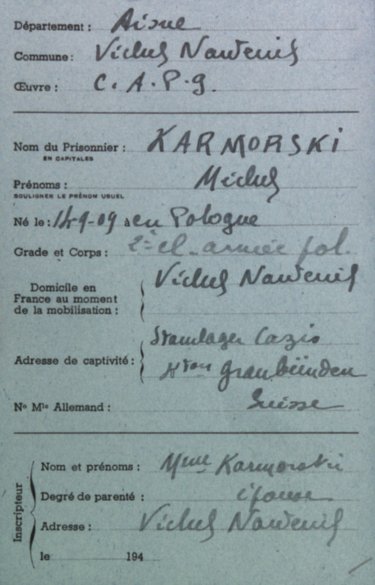 Département : Aisne
Commune : Vichel Nanteuil
Œuvre : C. A. P. g.
Nom du Prisonnier : KARMORSKI
EN CAPITALES
Prénoms : Michel
SOULIGNER LE PRÉNOM USUEL
Né le : 14-9-09 à en Pologne
Grade et Corps : 2e cl. armée pol.
Domicile en
France au moment
de la mobilisation : Vichel Nanteuil
Adresse de captivité : Straflager Cazis
Kton Graubünden
Suisse
No Mle Allemand :
Inscripteur
Nom et prénoms : Mme Karmorski
Degré de parenté : épouse
Adresse : Vichel Nanteuil
le 194